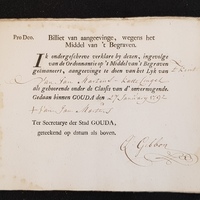 Pro Deo. Billiet van aangeevinge, wegens het
Middel van 't Begraven.
IK ondergeschreve verklare by dezen, ingevolge
van de Ordonnantie op 't Middel van 't Begraven
geëmaneert, aangeevinge te doen van het Lyk van
Jan
als gehoorende onder de Classis van d' onvermogende.
Gedaan binnen GOUDA den 27 January 1792
Jan
Ter Secretarye der Stad GOUDA,
geteekend op datum als boven.